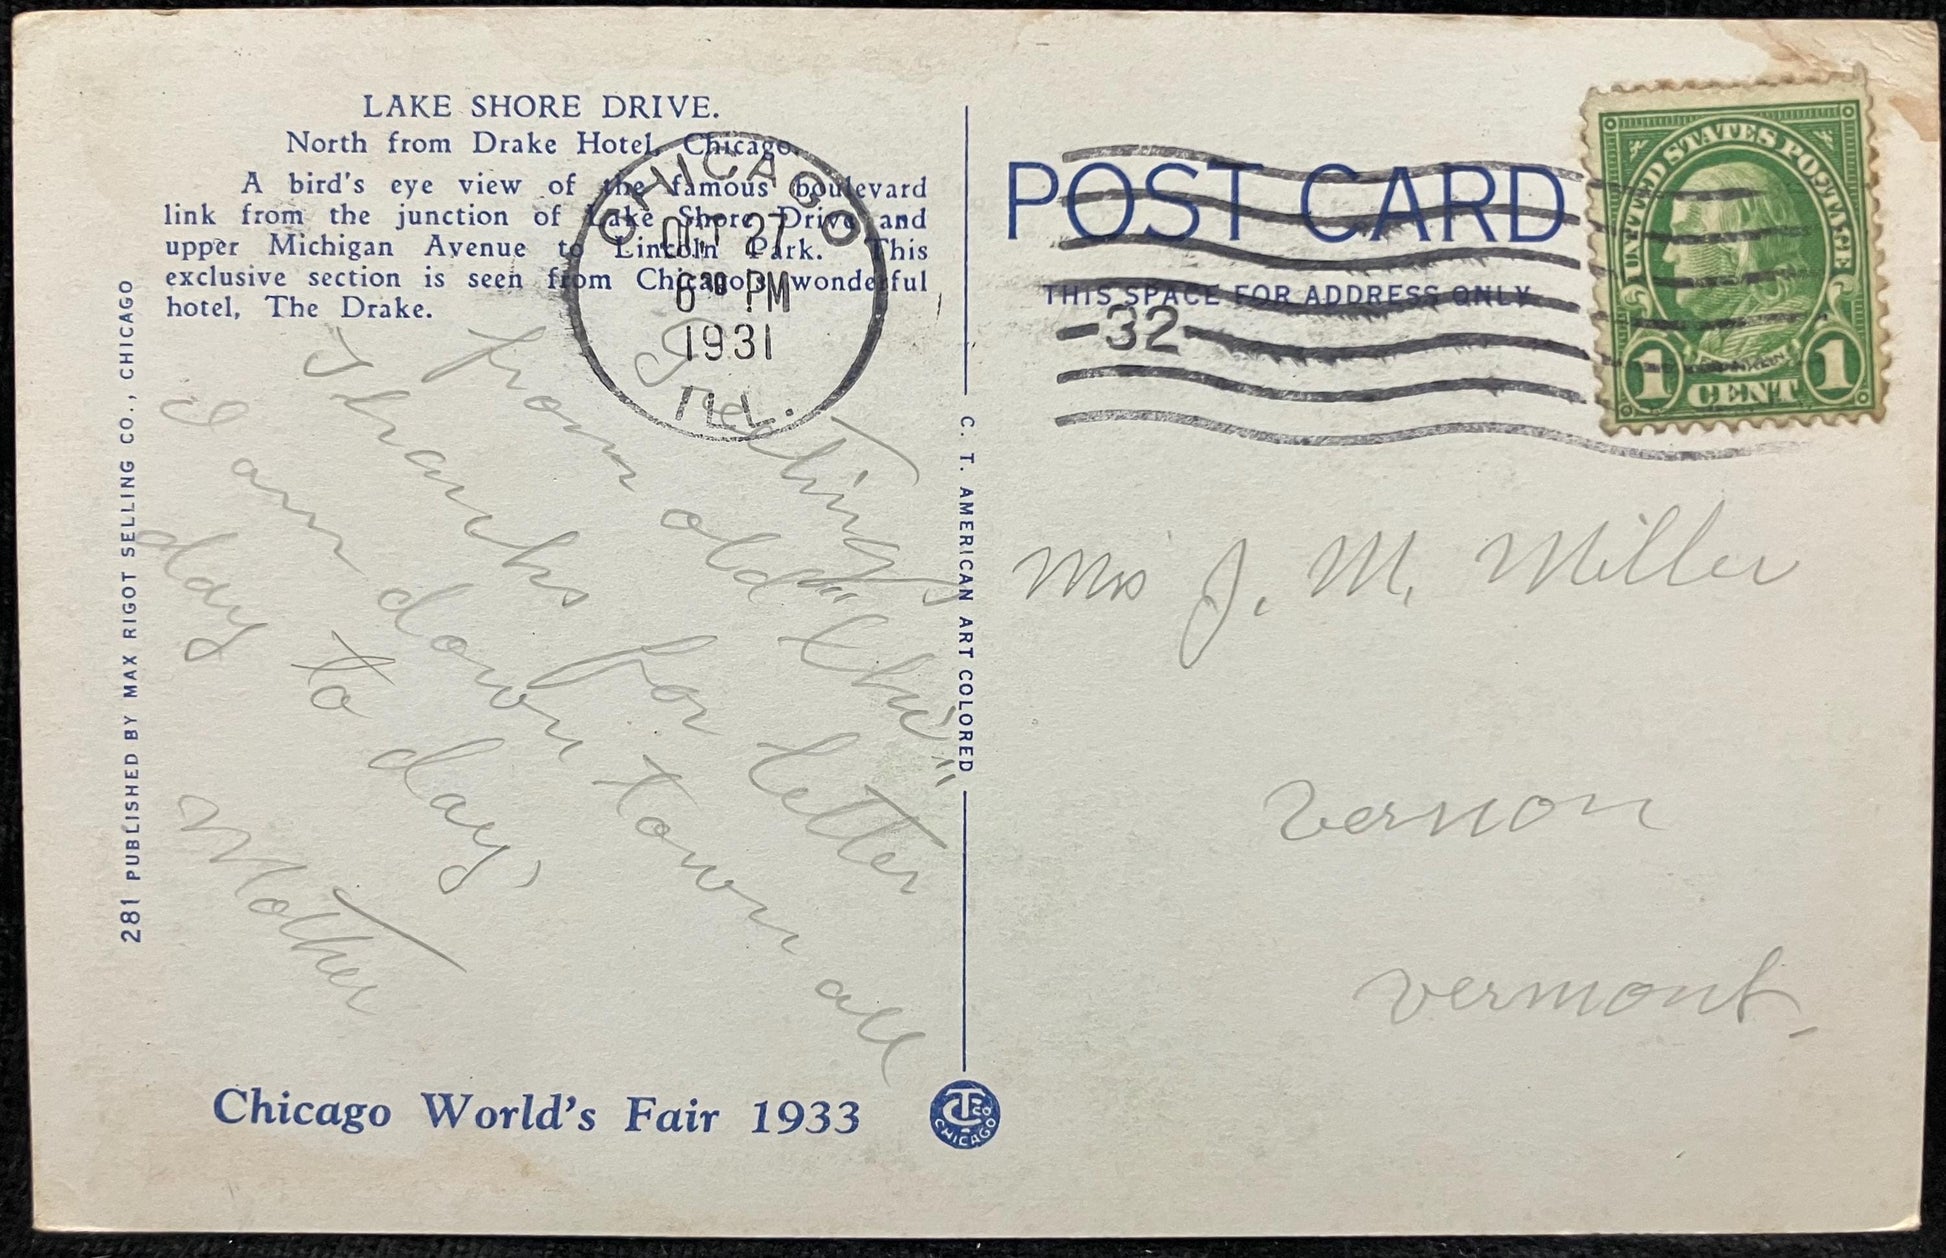 LAKE SHORE DRIVE.
North from Drake Hotel, Chicago.
A bird's eye view of the famous boulevard
link from the junction of Lake Shore Drive and
upper Michigan Avenue to Lincoln Park. This
exclusive section is seen from Chicago's wonderful
hotel, The Drake.
CHICAGO
OCT 27
6 30 PM
1931
ILL.
Greetings
from old "Chi"
Thanks for letter
I am down town all
day to day,
Mother
281 PUBLISHED BY MAX RIGOT SELLING CO., CHICAGO
Chicago World's Fair 1933
C. T. AMERICAN ART COLORED
CT CO
CHICAGO
POST CARD
THIS SPACE FOR ADDRESS ONLY
-32-
UNITED STATES POSTAGE
FRANKLIN
1 CENT 1
Mrs J. M. Miller
Vernon
Vermont.